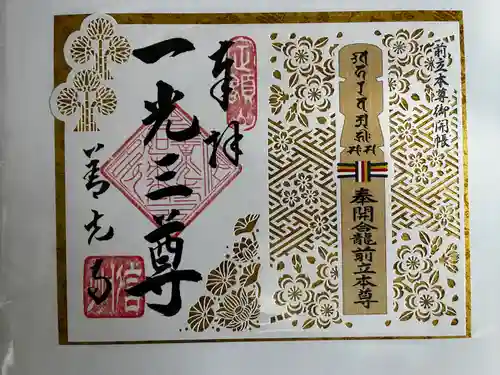 前立本尊御開帳
奉開龕前立本尊
奉拝
定額山
一光三尊
善光寺